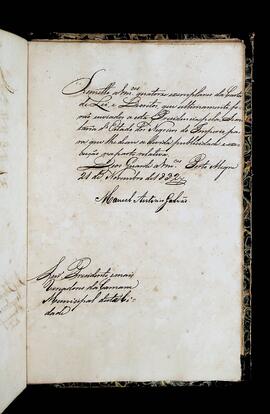 Remetto a Vm.ces quatro exemplares da Carta
de Lei e Decretos, que ultimamente fo
rão enviados a esta Presidencia pela Secre
taria d'Estado dos Negocios do Imperio pa
ra que lhe dêem a devida publicidade e exe
cução na parte relativa.
Deos Guarde a Vm.ces Porto Alegre
21 de Novembro de 1832
Manoel Antonio Galvão
Snr.s Presidente, e mais
Vereadores da Camara
Municipal desta Ci
dade